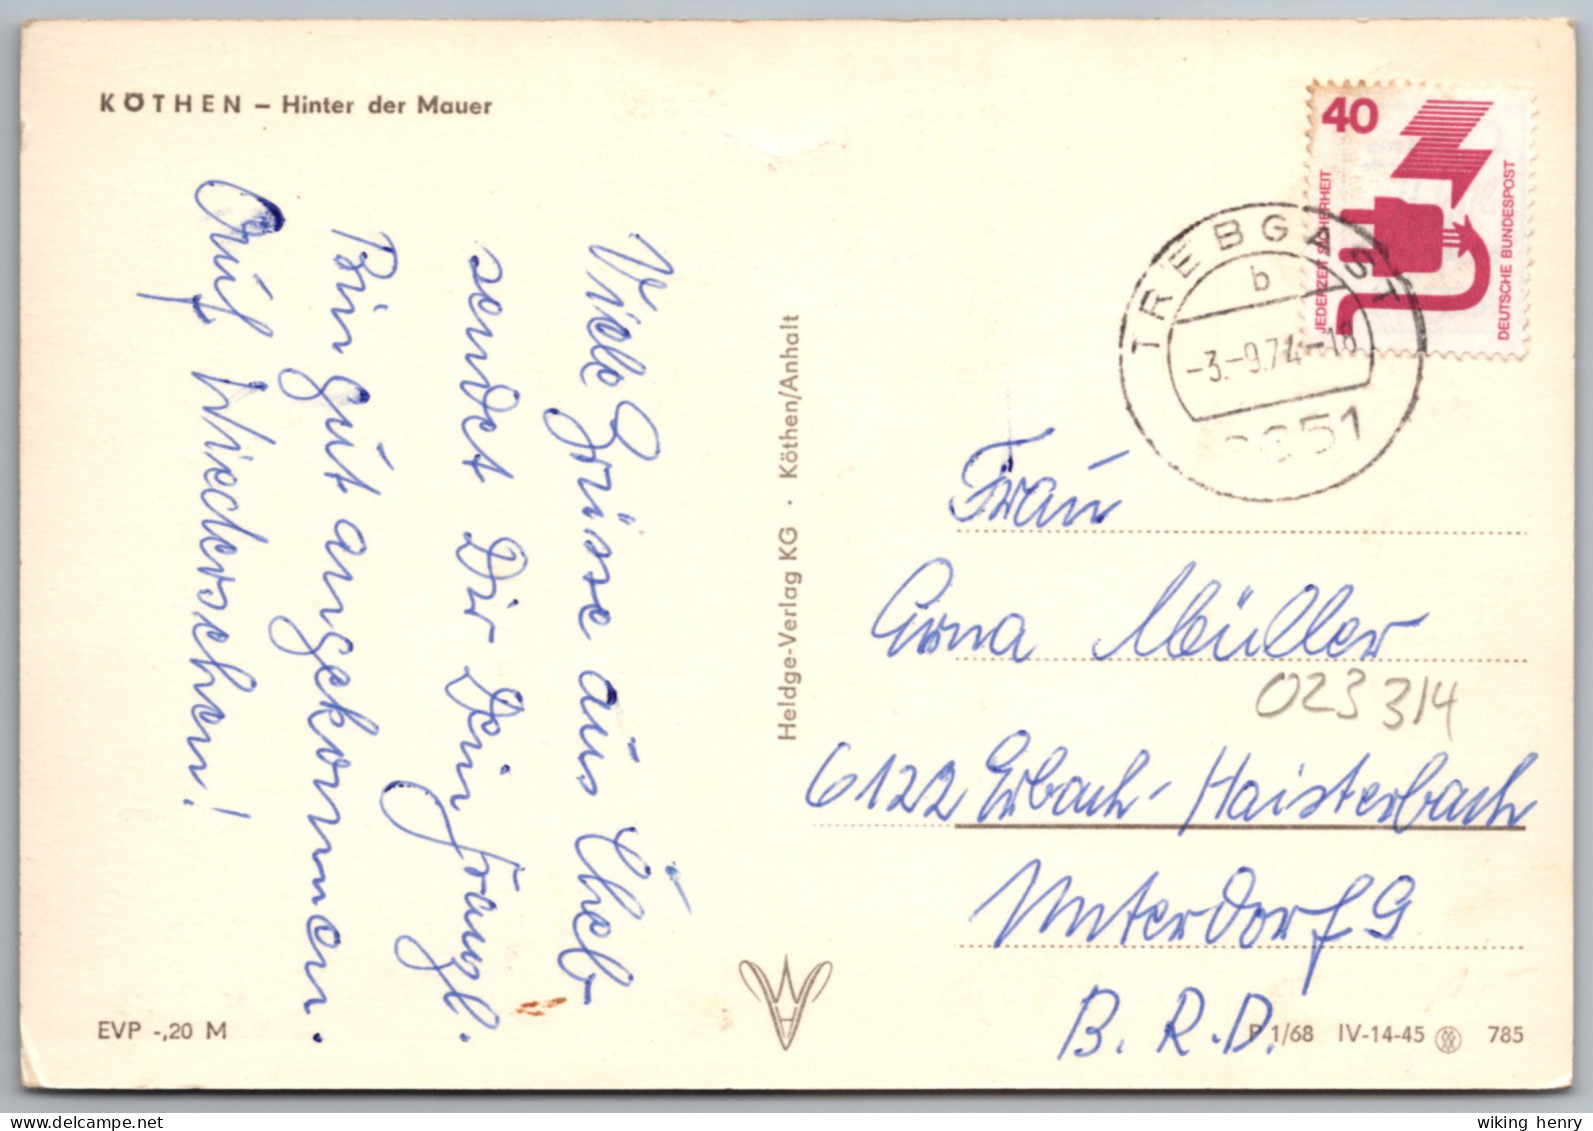 KÖTHEN – Hinter der Mauer
Viele Grüsse aus
sendet Dir Dein Franzl.
Bin gut angekommen.
Auf Wiedersehen!
EVP -,20 M
Heldge-Verlag KG · Köthen/Anhalt
40
JEDERZEIT SICHERHEIT
DEUTSCHE BUNDESPOST
TREBGAST
b
-3.-9.74-18
8651
Frau
Erna Müller
023314
6122 Erbach-Haisterbach
Unterdorf 9
B.R.D.
P 1/68 IV-14-45 785
wiking henry